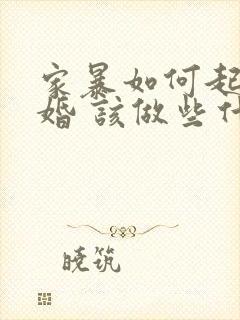 家暴如何起
婚 该做些什
晓筑